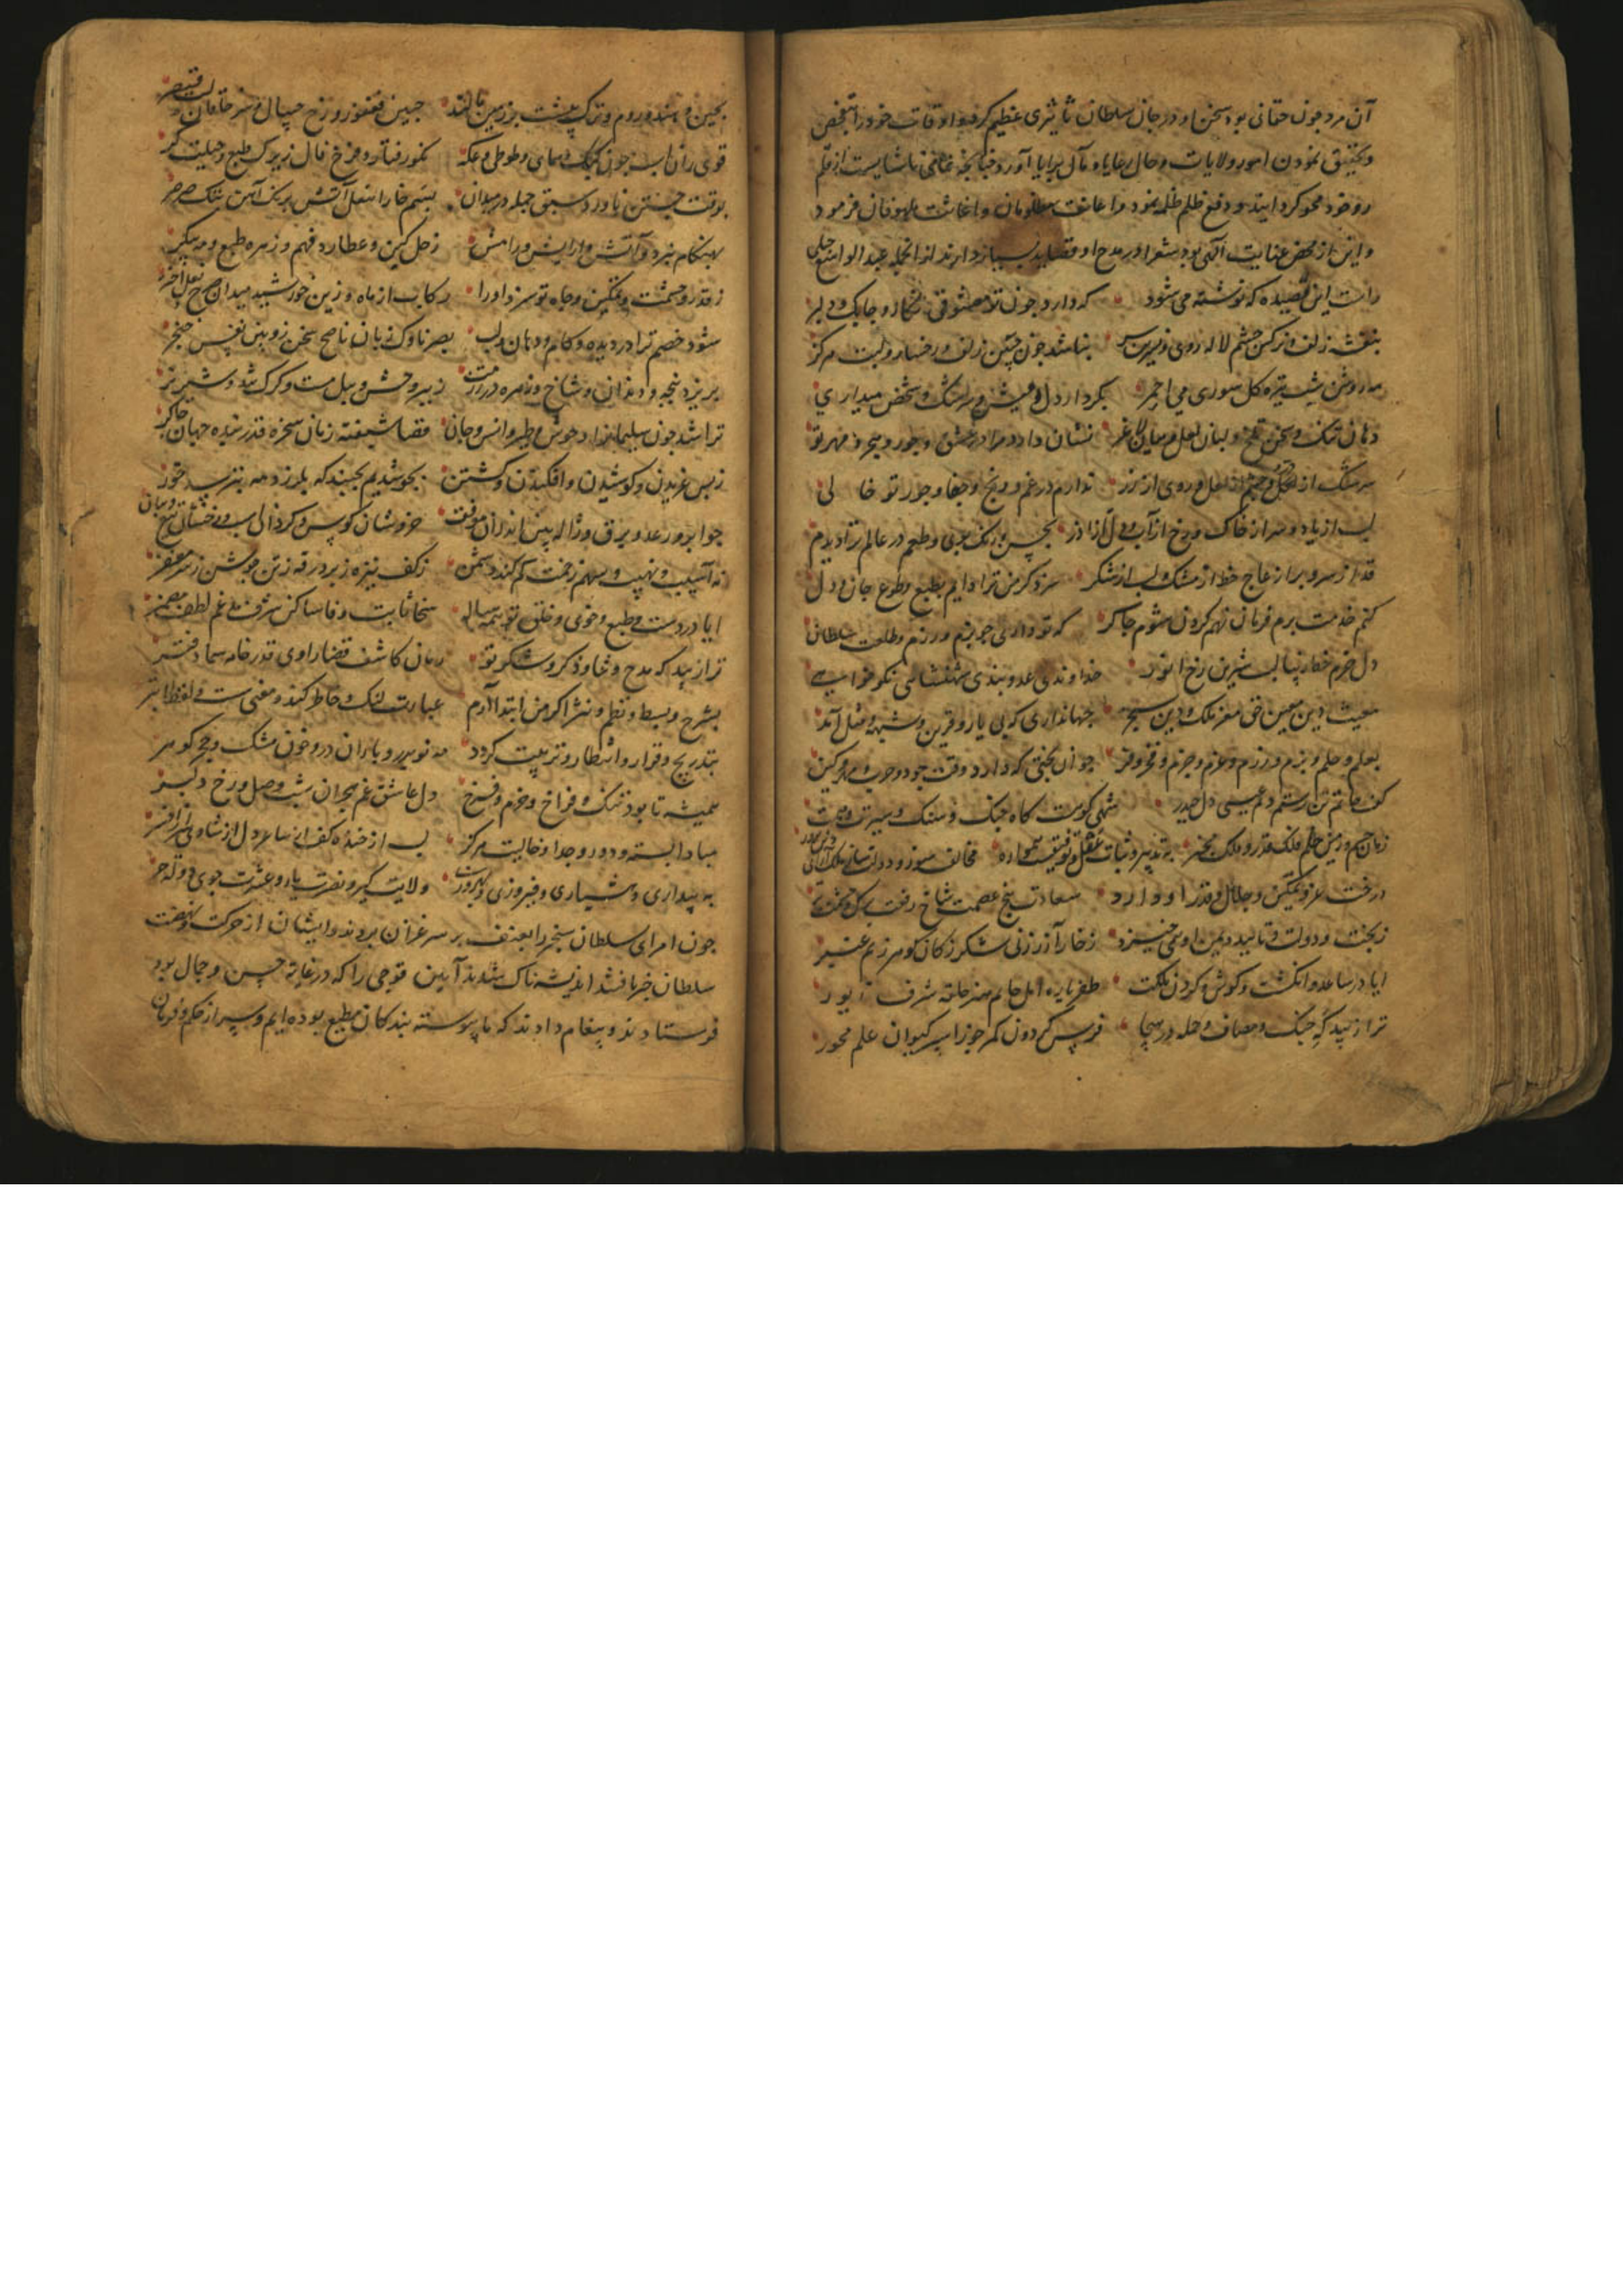 آن مرد چون حقانی بود سخن او در جان سلطان تاثیری عظیم کرد و اوقات خود را بتفحص
و تحقیق نمودن امور ولایات و حال رعایا و مآل برایا آورد چنانچه تمامی ناشایست از قلم
رو خود محو کردانید و دفع ظلم ظلمه نمود و اعانت مظلومان و اغاثت ملهوفان فرمود
و این از محض عنایت الهی بود شعرا در مدح او قصاید بسیار دارند از انجمله عبدالواسع جبلی
راست این قصیده که نوشته می شود که دارد چون تو معشوقی نکار و چابک و دلبر
بنفشه زلف و نرکس چشم لاله روی و نسرین بر نباشد چون جبین و زلف و رخسار و لبت هرکز
مه روشن شب تیره کل سوری می احمر بکردار دل و عیش و سرشک و شخص میداری
دهان تنک و سخن تلخ و لبان لعل و میان لاغر نشان دارد مرا در عشق و جور و هجر و مهر تو
سرشک از لعل و روی از زر ندارم در غم و رنج و جفا و جور تو خالی
لب از باد و سر از خاک و رخ از آب و دل از آذر بحسن و رنک و بوی و طعم در عالم ترا دیدم
قد از سرو و بر از عاج خط از مشک و لب از شکر سزد کر من ترا دایم بطبع و طوع جان و دل
کنم خدمت برم فرمان نهم کردن شوم چاکر که تو داری چو بزم و رزم و طلعت سلطان
دل خرم خط زیبا لب شیرین رخ انور خداوندی عدو بندی شهنشاهی نکو خواهی
مغیث دین معین حق معز ملک و دین سنجر جهانداری که بی یار و قرین و شبه و مثل آمد
بعلم و حلم و بزم و رزم و عزم و حزم و فخر و فر جوان بختی که دارد وقت جود و حرب و مهر و کین
کف حاتم تن رستم دم عیسی دل حیدر شهی کوست کاه جنک و سنک و سیرت و همت
زمان جسم و زمین حلم و فلک قدر و ملک مخبر به تدبیر و ثبات عقل و توفیق همواره مخالف سوز و دولت ساز ملک آرای و دین پرور
درخت عز و تمکین و جلال و قدر او دارد سعادت بیخ عصمت شاخ رفعت برک
ز بخت و دولت و تایید و یمن او همی خیزد ز خار آزر ز نی شکر ز کان کوهر ز یم عنبر
ایا در ساعد و انکشت و کوش و کردن ملکت ظفر یاره امل خاتم هنر حلقه شرف زیور
ترا زیبد که جنک و مصاف و حمله در هیجا فرس کردون کمر جوزا سپر کیوان علم محور
بچین و هند و روم و ترک پیشت بر زمین مالند جبین فغفور و رخ چیپال و سر خاقان لب قیصر
قوی ران اسب چون کبک و همای و طوطی و عکه نکو رفتار و فرخ فال زیرک طبع و حیلت کر
بوقت جستن و ناورد و سبق و حمله در میدان بسم خارا بنعل آتش برنک آهن بتک صرصر
بهنکام نبرد و آتش و آرایش و رامش زحل کین و عطارد فهم و زهره طبع و مه پیکر
ز قدر و حشمت و تمکین و جاه تو سزد او را رکاب از ماه و زین خورشید میدان چرخ نعل اختر
شود خصم ترا در دیده و کام و دهان و لب بصر ناوک زبان ناچخ سخن زوبین نفس خنجر
بریزد پنجه و دندان و شاخ و زهره در رزمت ز ببر وحش و پیل مست و کرک تند و شیر نر
ترا شد چون سلیمان دد و حوش و طیر و انس و جان قضا شیفته زمان سخره قدر بنده جهان چاکر
ز بس غریدن و کوشیدن و افکندن و کشتن بجوشد یم بجنبد که بلرزد مه بترسد خور
چو ابر و رعد و برق و ژاله بینی اندران موقف خروشان کوس و کرد ال سب و رخشان تیغ و پیکان
ز آسیب و نهیب و سهم زخمت کم کند دشمن ز کف نیزه ز بر درقه ز تن جوشن ز سر مغفر
ایا در دست و طبع و خوی و خلق تو همه ساله سخا ثابت وفا ساکن شرف مدغم لطف مضمر
ترا زیبد که مدح و ثنا و ذکر و شکر تو زبان کاشف قضا راوی قدر خامه سما دفتر
بشرح و بسط و نظم و نثر اکر من ابتدا آرم عبارت لنک و خاطر کند و معنی سست و لفظ ابتر
بتدریج و قرار و انتظار و تربیت کردد مه نو بدر و باران در و خون مشک و حجر کوهر
همیشه تا بود تنک و فراخ و خرم و فرخ دل عاشق غم هجران شب وصل و رخ دلبر
مبادا بسته و دور و جدا و خالیت هرکز لب از خنده کف از ساغر دل از شادی سر از افسر
به بیداری و هشیاری و فیروزی و بهروزی ولایت کیر و نصرت یاب و عشرت جوی و دولت خر
چون امرای سلطان سنجر را بعنف بر سر غزان بردند و ایشان از حرکت و نهضت
سلطان خبر یافتند اندیشه ناک شدند آیین قتوجی را که در غایة حسن و جمال بود
فرستادند و پیغام دادند که ما پیوسته بندکان مطیع بوده ایم و سر از حکم و فرمان